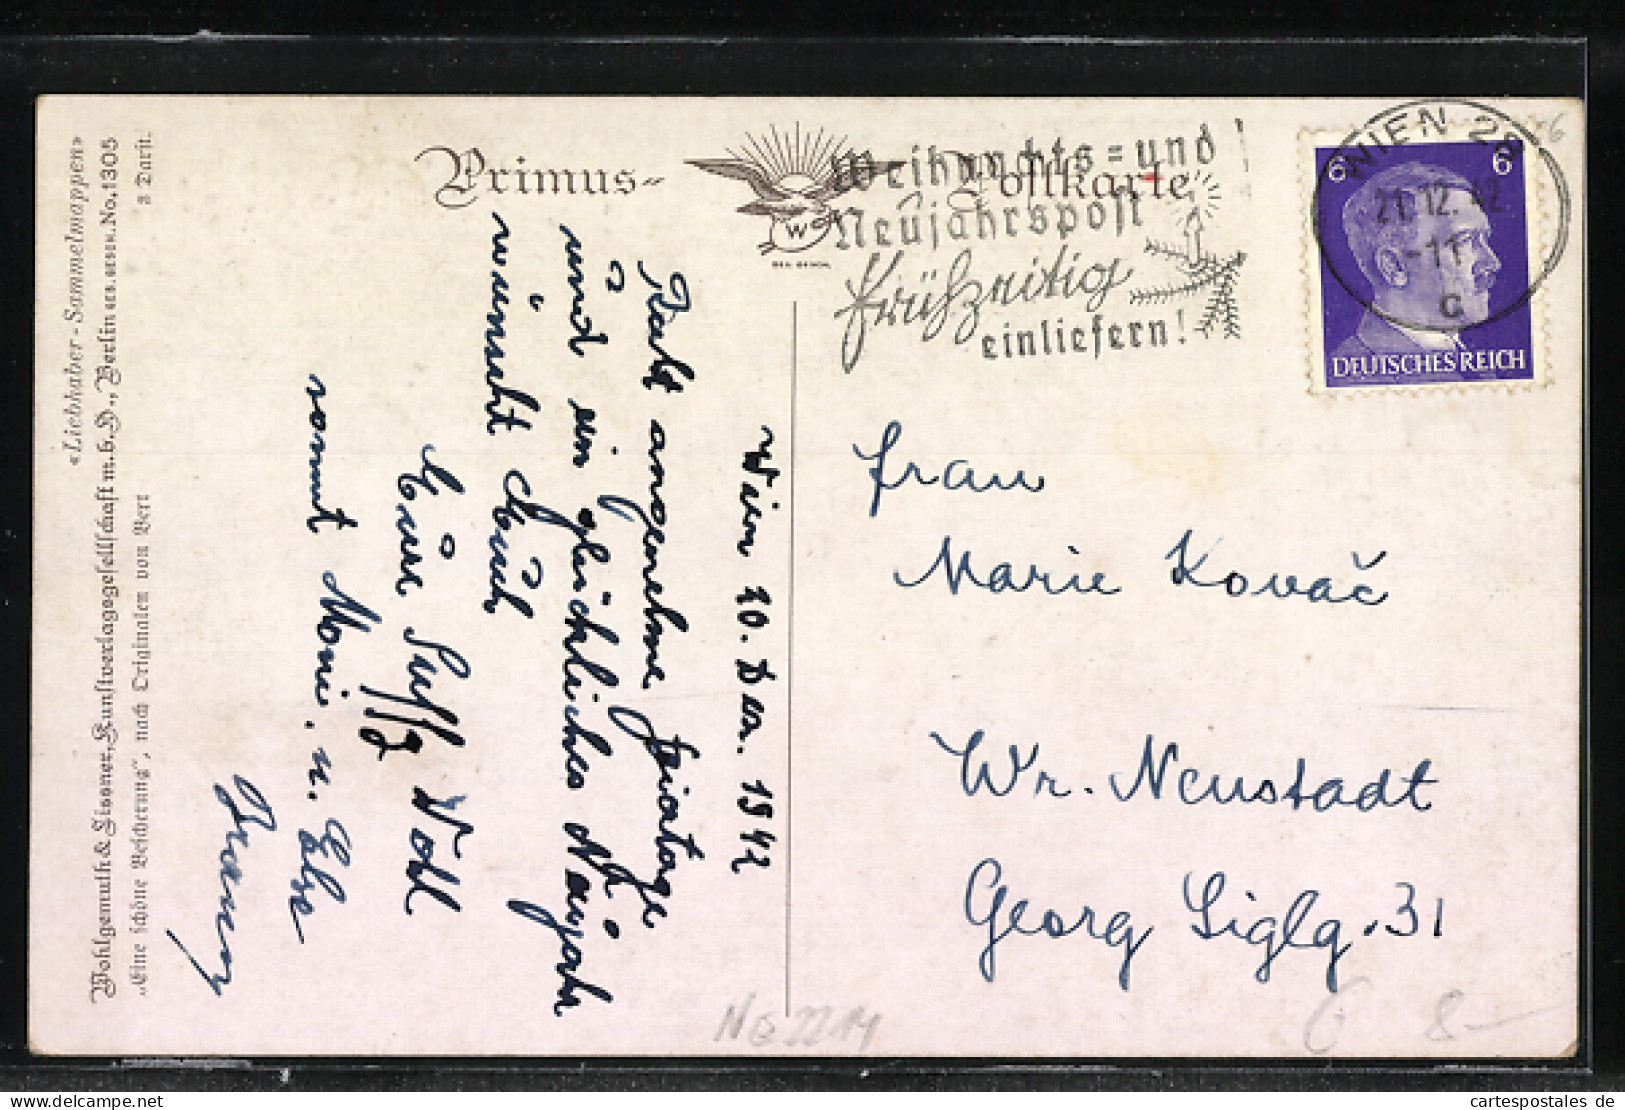 Primus-Postkarte
W
GES. GESCH.
Weihnachts= und
Neujahrspost
frühzeitig
einliefern!
WIEN 28
21.12.42
-11
c
6 6
DEUTSCHES REICH
«Liebhaber-Sammelmappen»
Wohlgemuth & Lissner, Kunstverlagsgesellschaft m.b.H., Berlin GES. GESCH. No. 1305
„Eine schöne Bescherung", nach Originalen von Bert
3 Darst.
Wien 20. Dez. 1942
Recht angenehme Feiertage
und ein glückliches Neujahr
wünscht Euch
Eure Wohl
samt u. Else
Frau
Marie Kovač
Wr. Neustadt
Georg Siglg. 31
6
8-
cartespostales.de